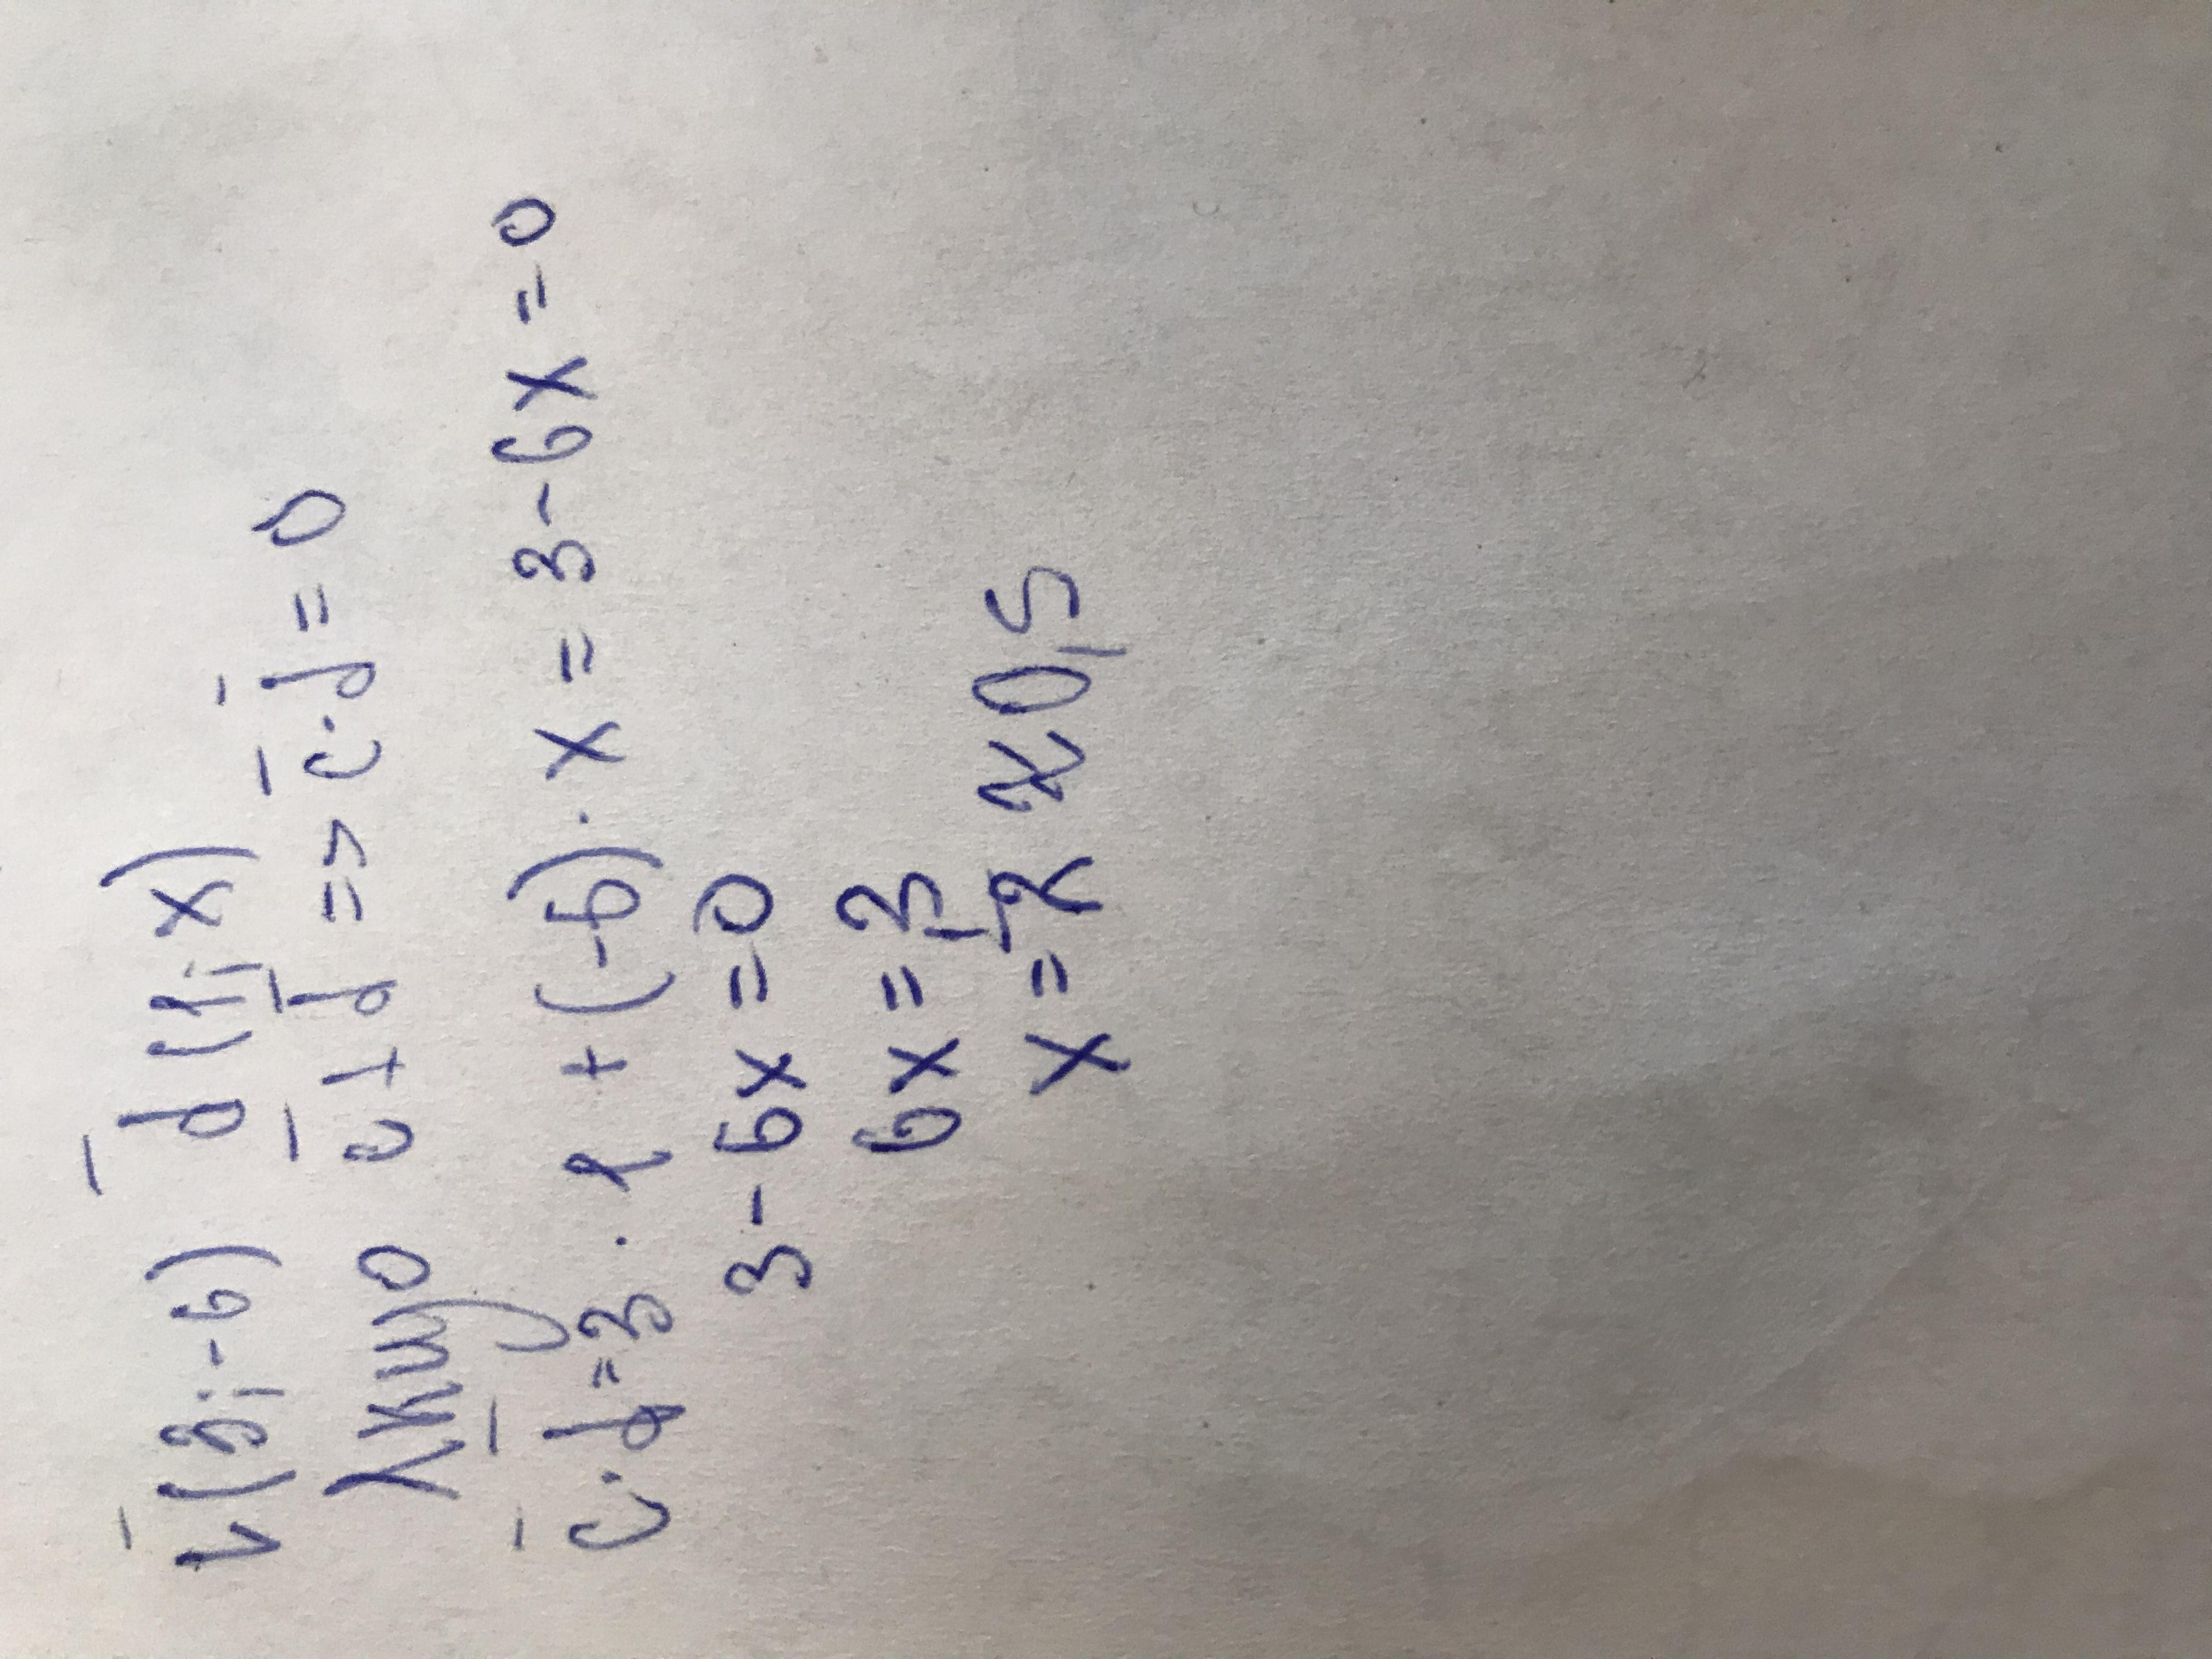 c̄(3;-6) d̄(1;x)
Якщо c̄⊥d̄ => c̄·d̄=0
c̄·d̄=3·1+(-6)·x=3-6x=0
3-6x=0
6x=3
x=1/2=0,5